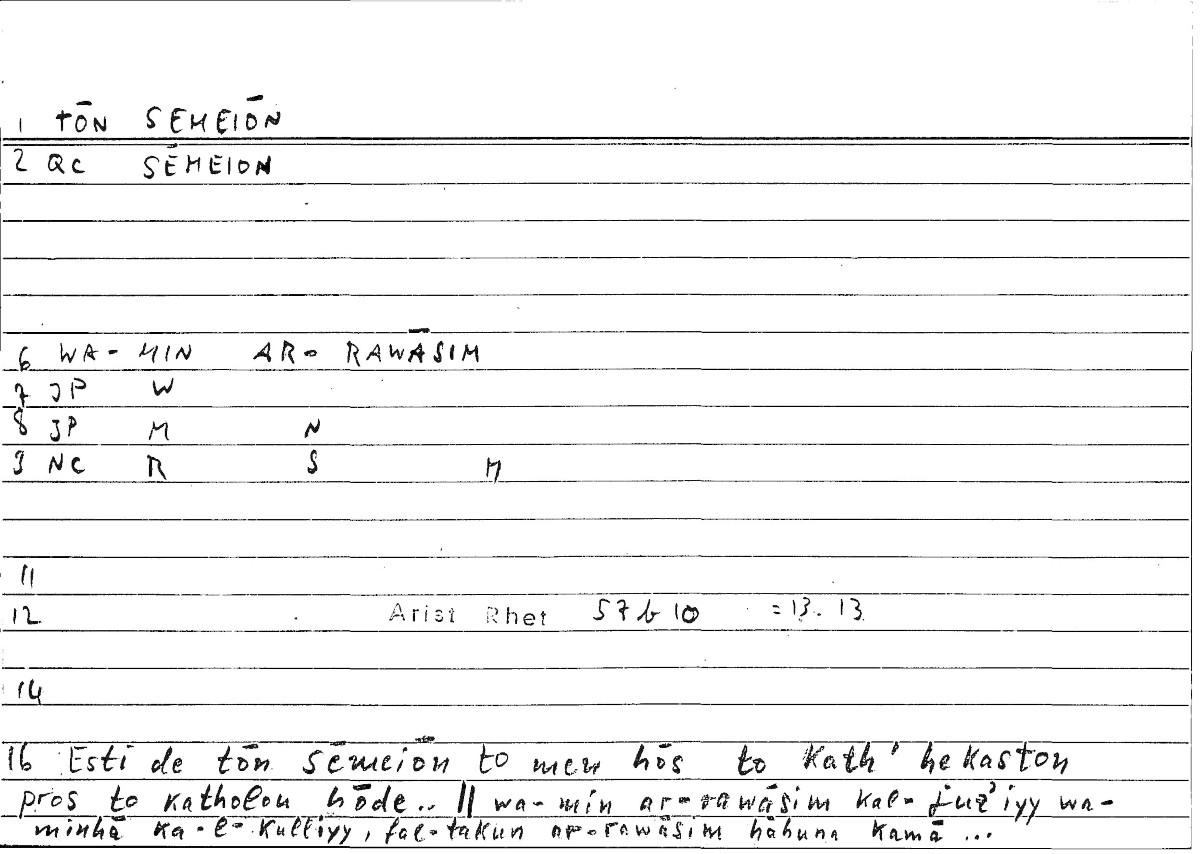 1 TŌN SEMEIŌN
2 QC SĒMEION
6 WA- MIN AR- RAWĀSIM
7 JP W
8 JP M N
9 NC R S M
11
12 Arist Rhet 57b10 =13.13
14
16 Esti de tōn sēmeiōn to men hōs to kath' hekaston
pros to katholou hōde.. || wa-min ar-rawāsim kal-ǧuz'iyy wa-
minhā ka-l-kulliyy, fal-takun ar-rawāsim hāhuna kamā ...